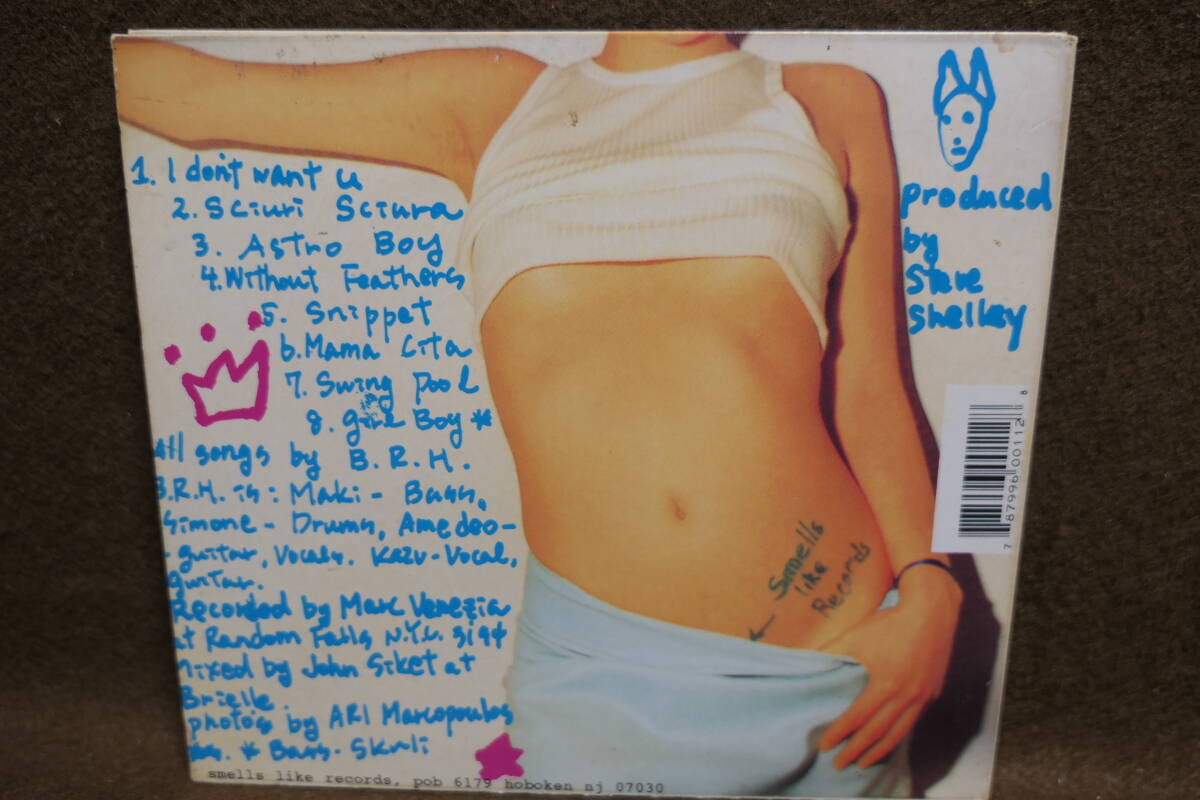 1. I don't want u
2. Sciuri Sciura
3. Astro Boy
4. Without Feathers
5. Snippet
6. Mama Cita
7. Swing Pool
8. Girl Boy *
All songs by B.R.H.
B.R.H. is: Maki - Bass,
Simone - Drums, Amedeo -
- guitar, Vocals. Kazu - Vocal,
guitar.
Recorded by Marc Venezia
at Random Falls N.Y.C. 3/94
Mixed by John Siket at
Brielle.
photos by ARI Marcopoulos
* Bass - Skuli
smells like records, pob 6179 hoboken nj 07030
produced
by
Steve
Shelley
Smells
like
Records
7 87996 00112 8